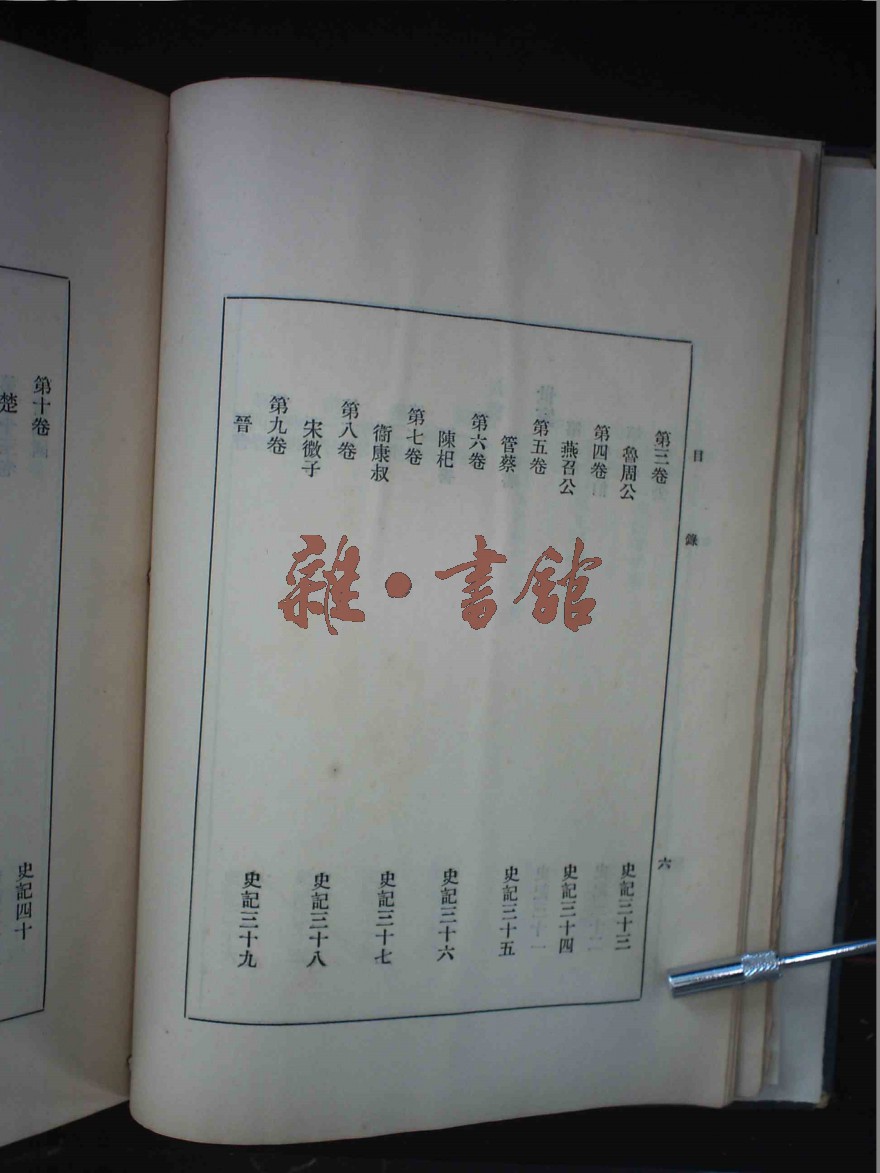 目錄 六
第三卷
魯周公 史記三十三
第四卷
燕召公 史記三十四
第五卷
管蔡 史記三十五
第六卷
陳杞 史記三十六
第七卷
衞康叔 史記三十七
第八卷
宋微子 史記三十八
第九卷
晉 史記三十九
第十卷
楚 史記四十
雜·書館